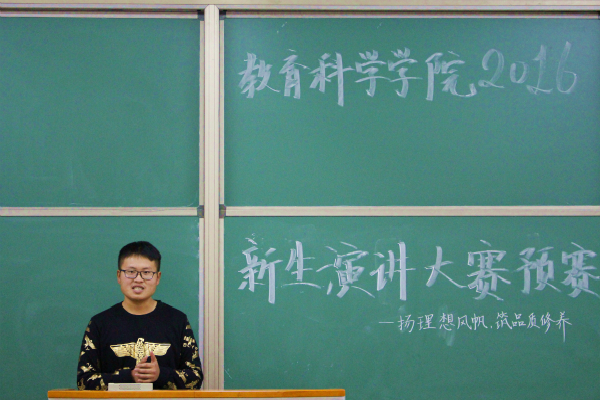 教育科学学院2016
新生演讲大赛预赛
—扬理想风帆,筑品质修养